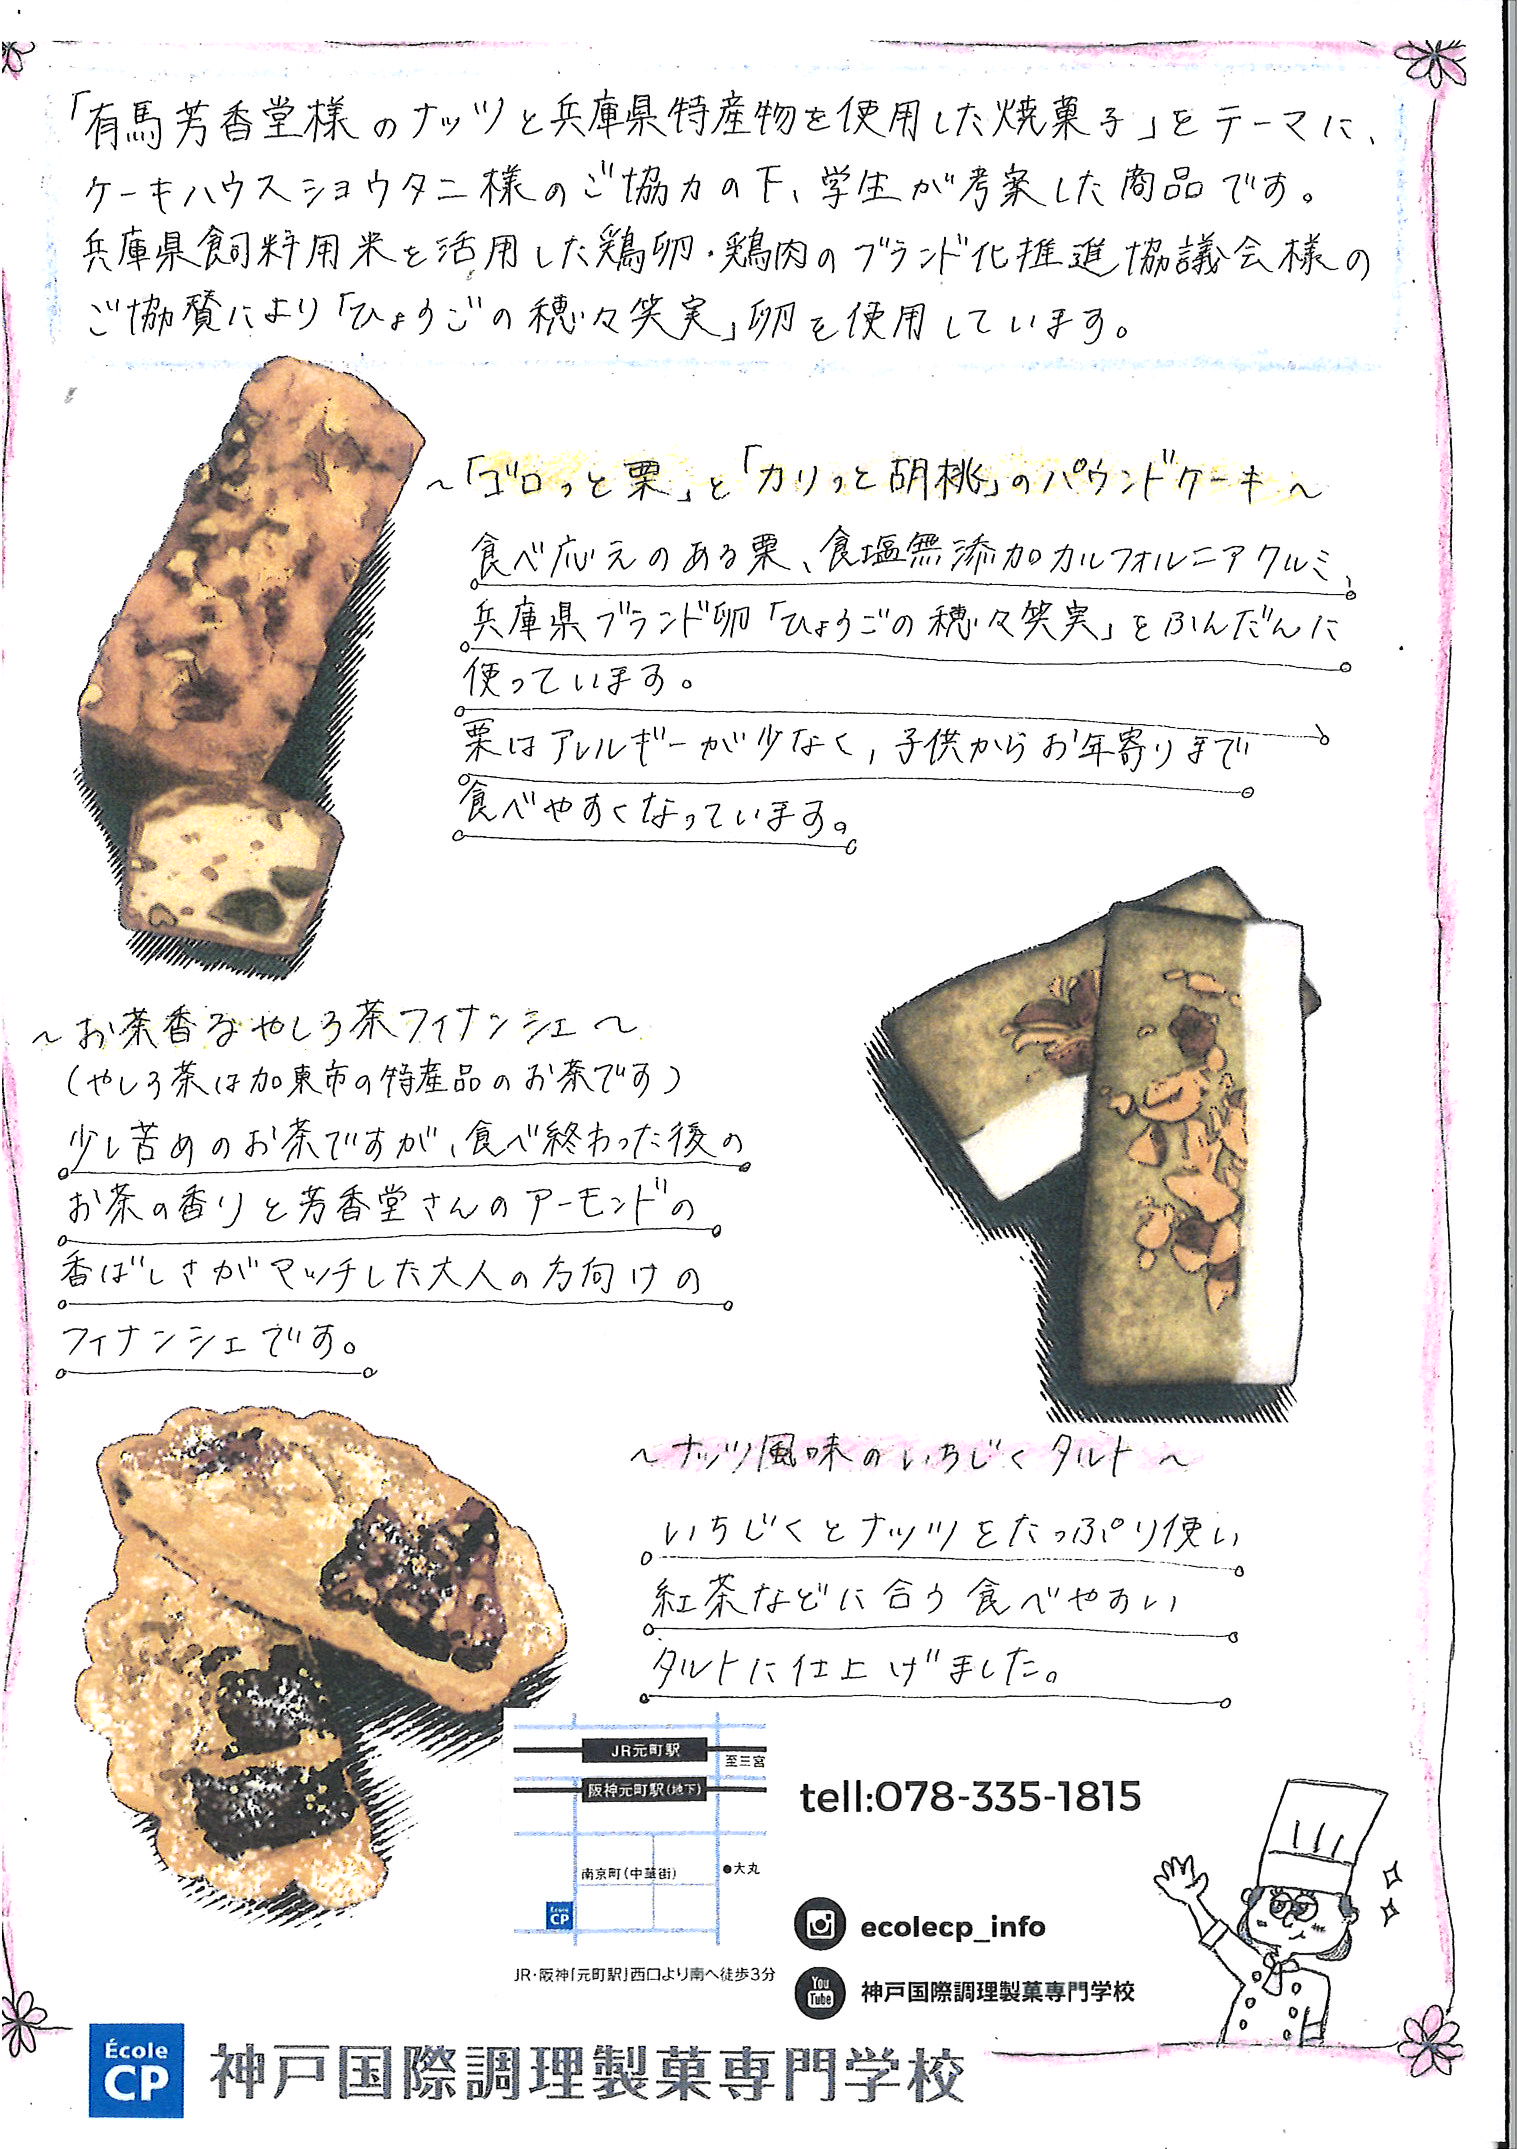 「有馬芳香堂様のナッツと兵庫県特産物を使用した焼菓子」をテーマに、
ケーキハウスショウタニ様のご協力の下、学生が考案した商品です。
兵庫県飼料用米を活用した鶏卵・鶏肉のブランド化推進協議会様の
ご協賛により「ひょうごの穂々笑実」卵を使用しています。
～「ゴロっと栗」と「カリっと胡桃」のパウンドケーキ～
食べ応えのある栗、食塩無添加カルフォルニアクルミ、
兵庫県ブランド卵「ひょうごの穂々笑実」をふんだんに
使っています。
栗はアレルギーが少なく、子供からお年寄りまで
食べやすくなっています。
～お茶香るやしろ茶フィナンシェ～
(やしろ茶は加東市の特産品のお茶です)
少し苦めのお茶ですが、食べ終わった後の
お茶の香りと芳香堂さんのアーモンドの
香ばしさがマッチした大人の方向けの
フィナンシェです。
～ナッツ風味のいちじくタルト～
いちじくとナッツをたっぷり使い
紅茶などに合う食べやすい
タルトに仕上げました。
JR元町駅
至三宮
阪神元町駅(地下)
南京町(中華街)
●大丸
École
CP
JR・阪神「元町駅」西口より南へ徒歩3分
tell:078-335-1815
ecolecp_info
You Tube
神戸国際調理製菓専門学校
École
CP
神戸国際調理製菓専門学校